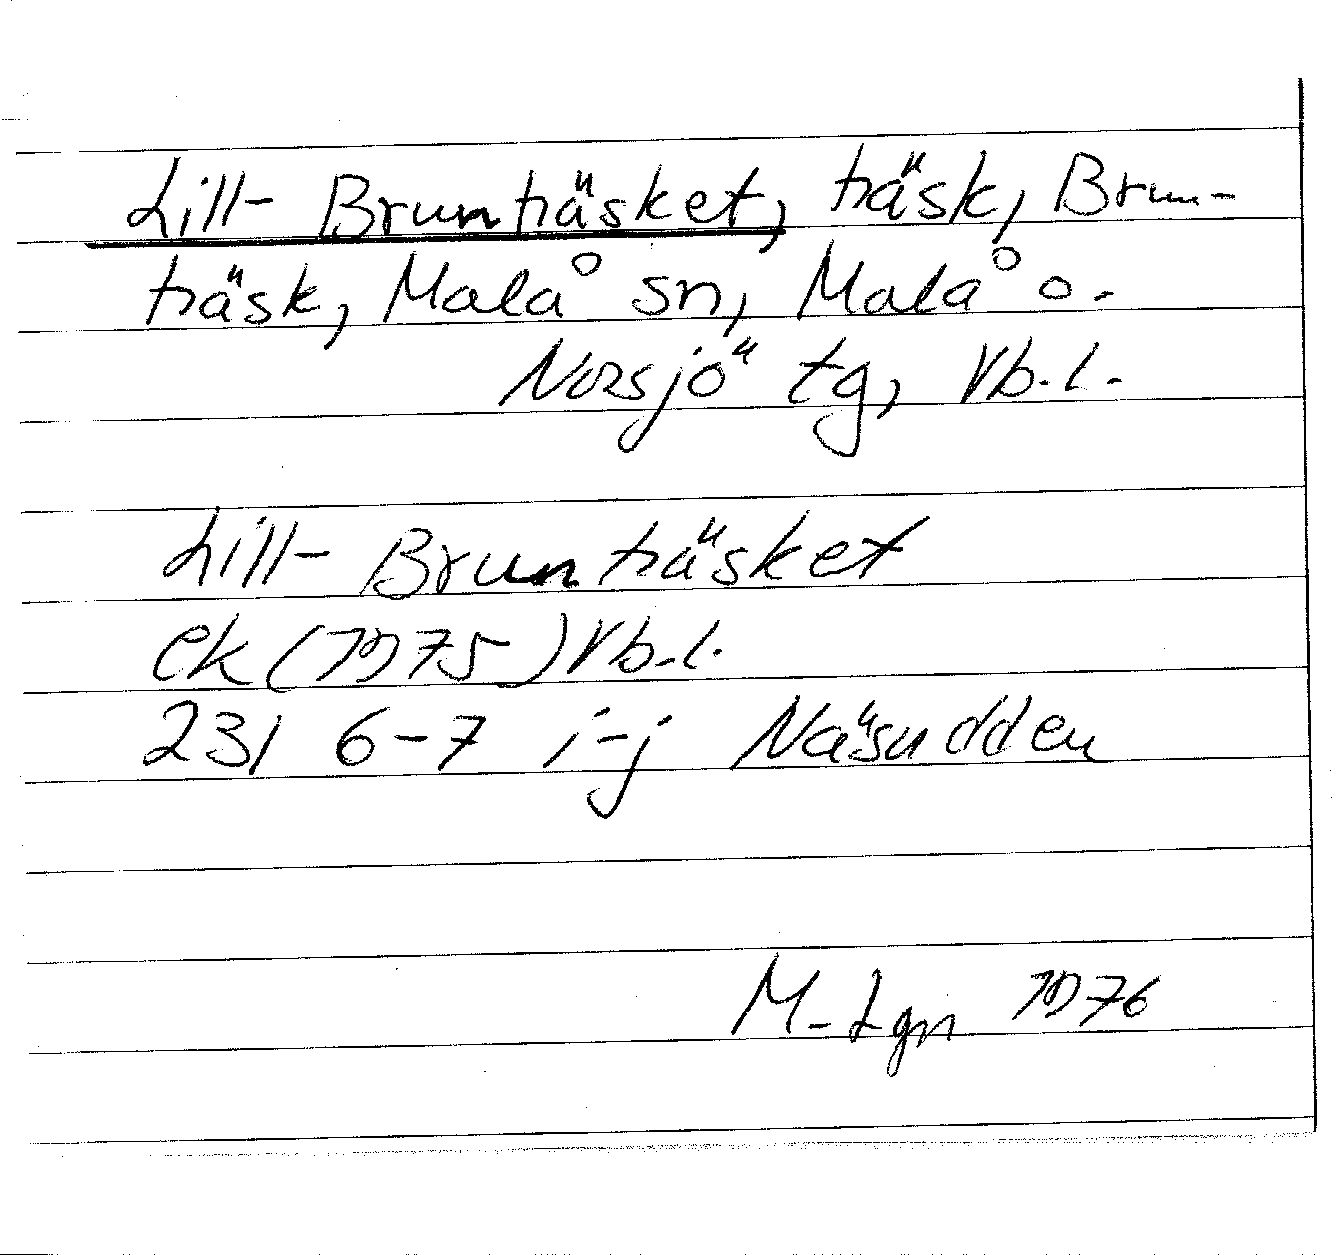 Lill-Bruntäsket, träsk, Brun-
träsk, Malå sn, Malå o.
Norsjö tg, Vb.l.
Lill-Brunträsket
ek (1975) Vb.l.
231 6-7 i-j Näsudden
M-Lgn 1976